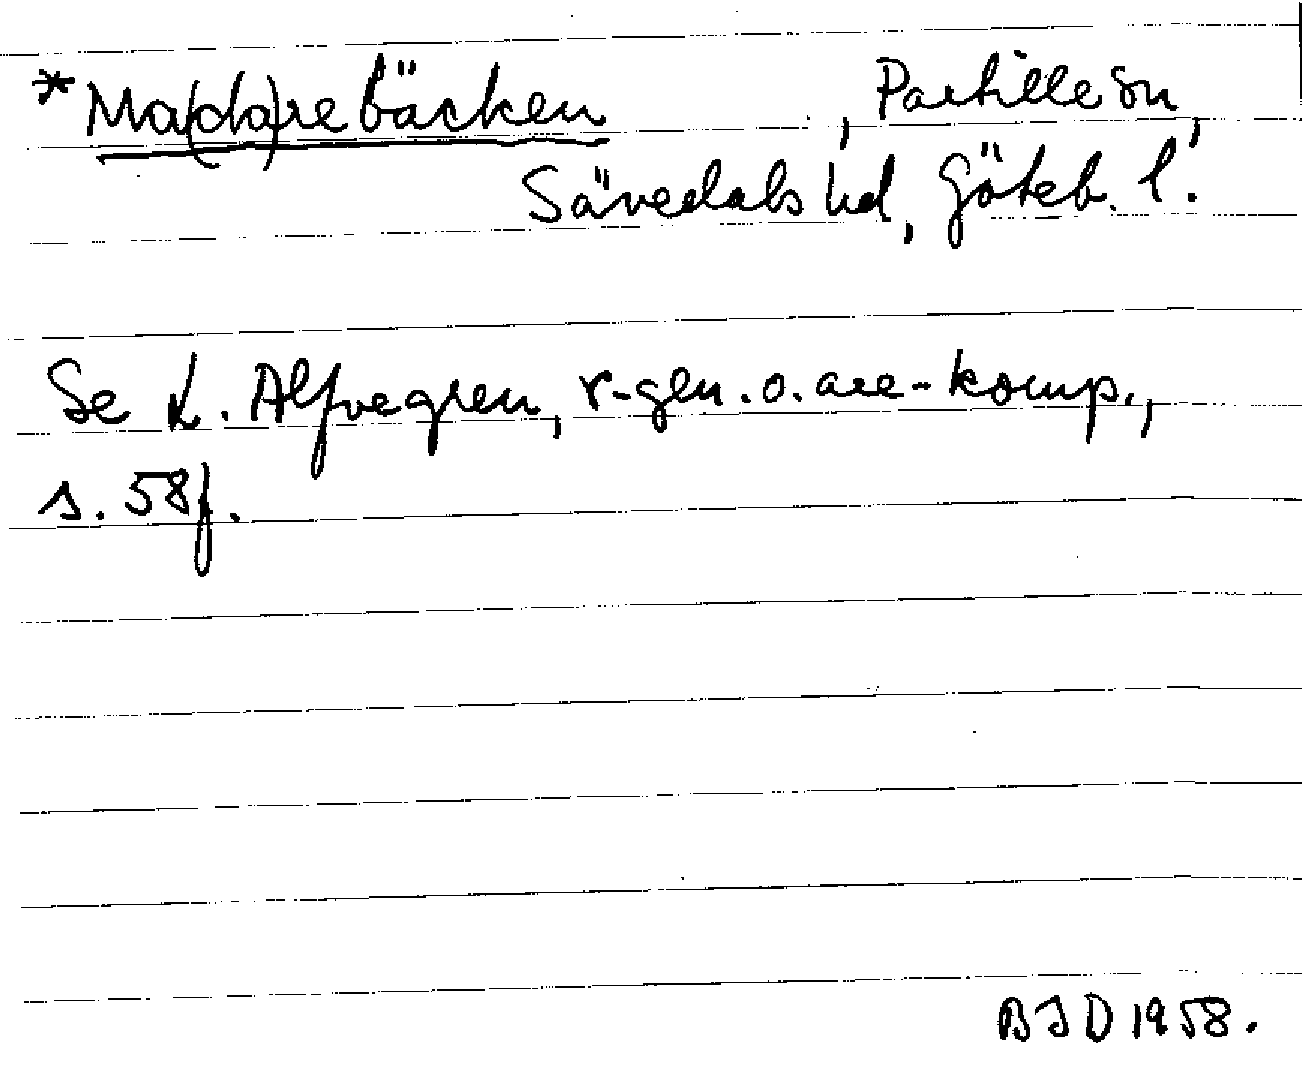 *Ma(da)rebäcken, Partille sn,
Sävedals hd, Göteb. l.
Se L. Alfvegren, r-gen. o. are-komp.,
s. 58f.
BJD 1958.